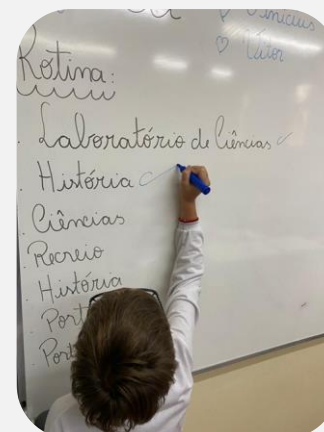 Vinícius
Vitor
Rotina:
Laboratório de Ciências
História
Ciências
Recreio
História